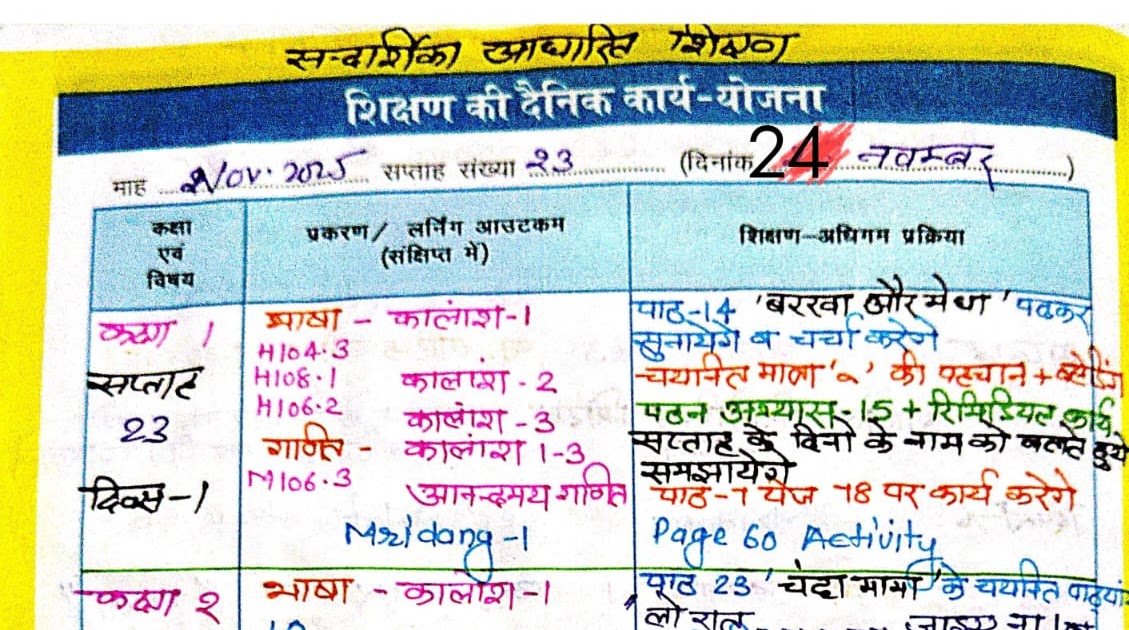 सन्दर्शिका आधारित शिक्षण
शिक्षण की दैनिक कार्य-योजना
माह Nov. 2025 सप्ताह संख्या 23 (दिनांक 24 नवम्बर)
कक्षा एवं विषय
प्रकरण/ लर्निंग आउटकम (संक्षिप्त में)
शिक्षण-अधिगम प्रक्रिया
कक्षा 1
सप्ताह
23
दिवस-1
भाषा - कालांश-1
H104.3
H108.1 कालांश-2
H106.2 कालांश-3
गणित - कालांश 1-3
M106.3 आनन्दमय गणित
Mridang-1
पाठ-14 'बरखा और मेधा' पढकर
सुनायेगे व चर्चा करेगे
पठन अभ्यास-15 + रिमिडियल कार्य
सप्ताह के दिनो के नाम को बताते हुये
समझायेगे
पाठ-7 पेज 78 पर कार्य करेगे
Page 60 Activity
कक्षा 2
भाषा - कालांश-1
पाठ 23 'चंदा मामा' के चयनित